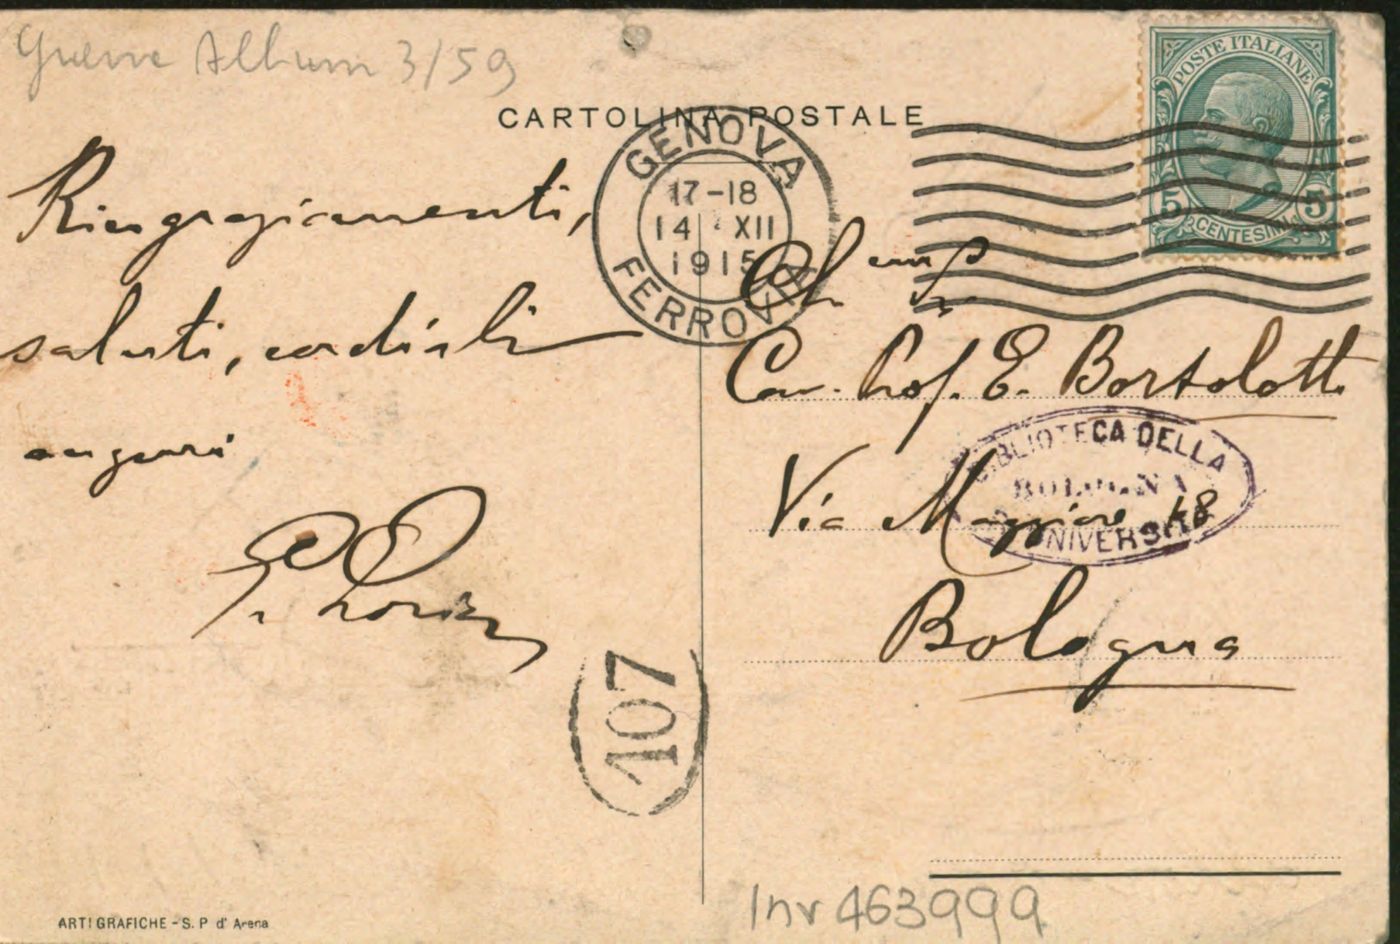 Guerre Album 3/59
CARTOLINA POSTALE
GENOVA
17-18
14 XII
1915
FERROVIA
POSTE ITALIANE
5 CENTESIMI 5
Ringraziamenti,
saluti, cordiali
auguri
Ch.mo
Cav. Prof. E. Bortolotti
Via Maggiore 18
Bologna
BIBLIOTECA DELLA
BOLOGNA
UNIVERSITÀ
107
ARTI GRAFICHE - S. P. d' Arena
Inv 463999